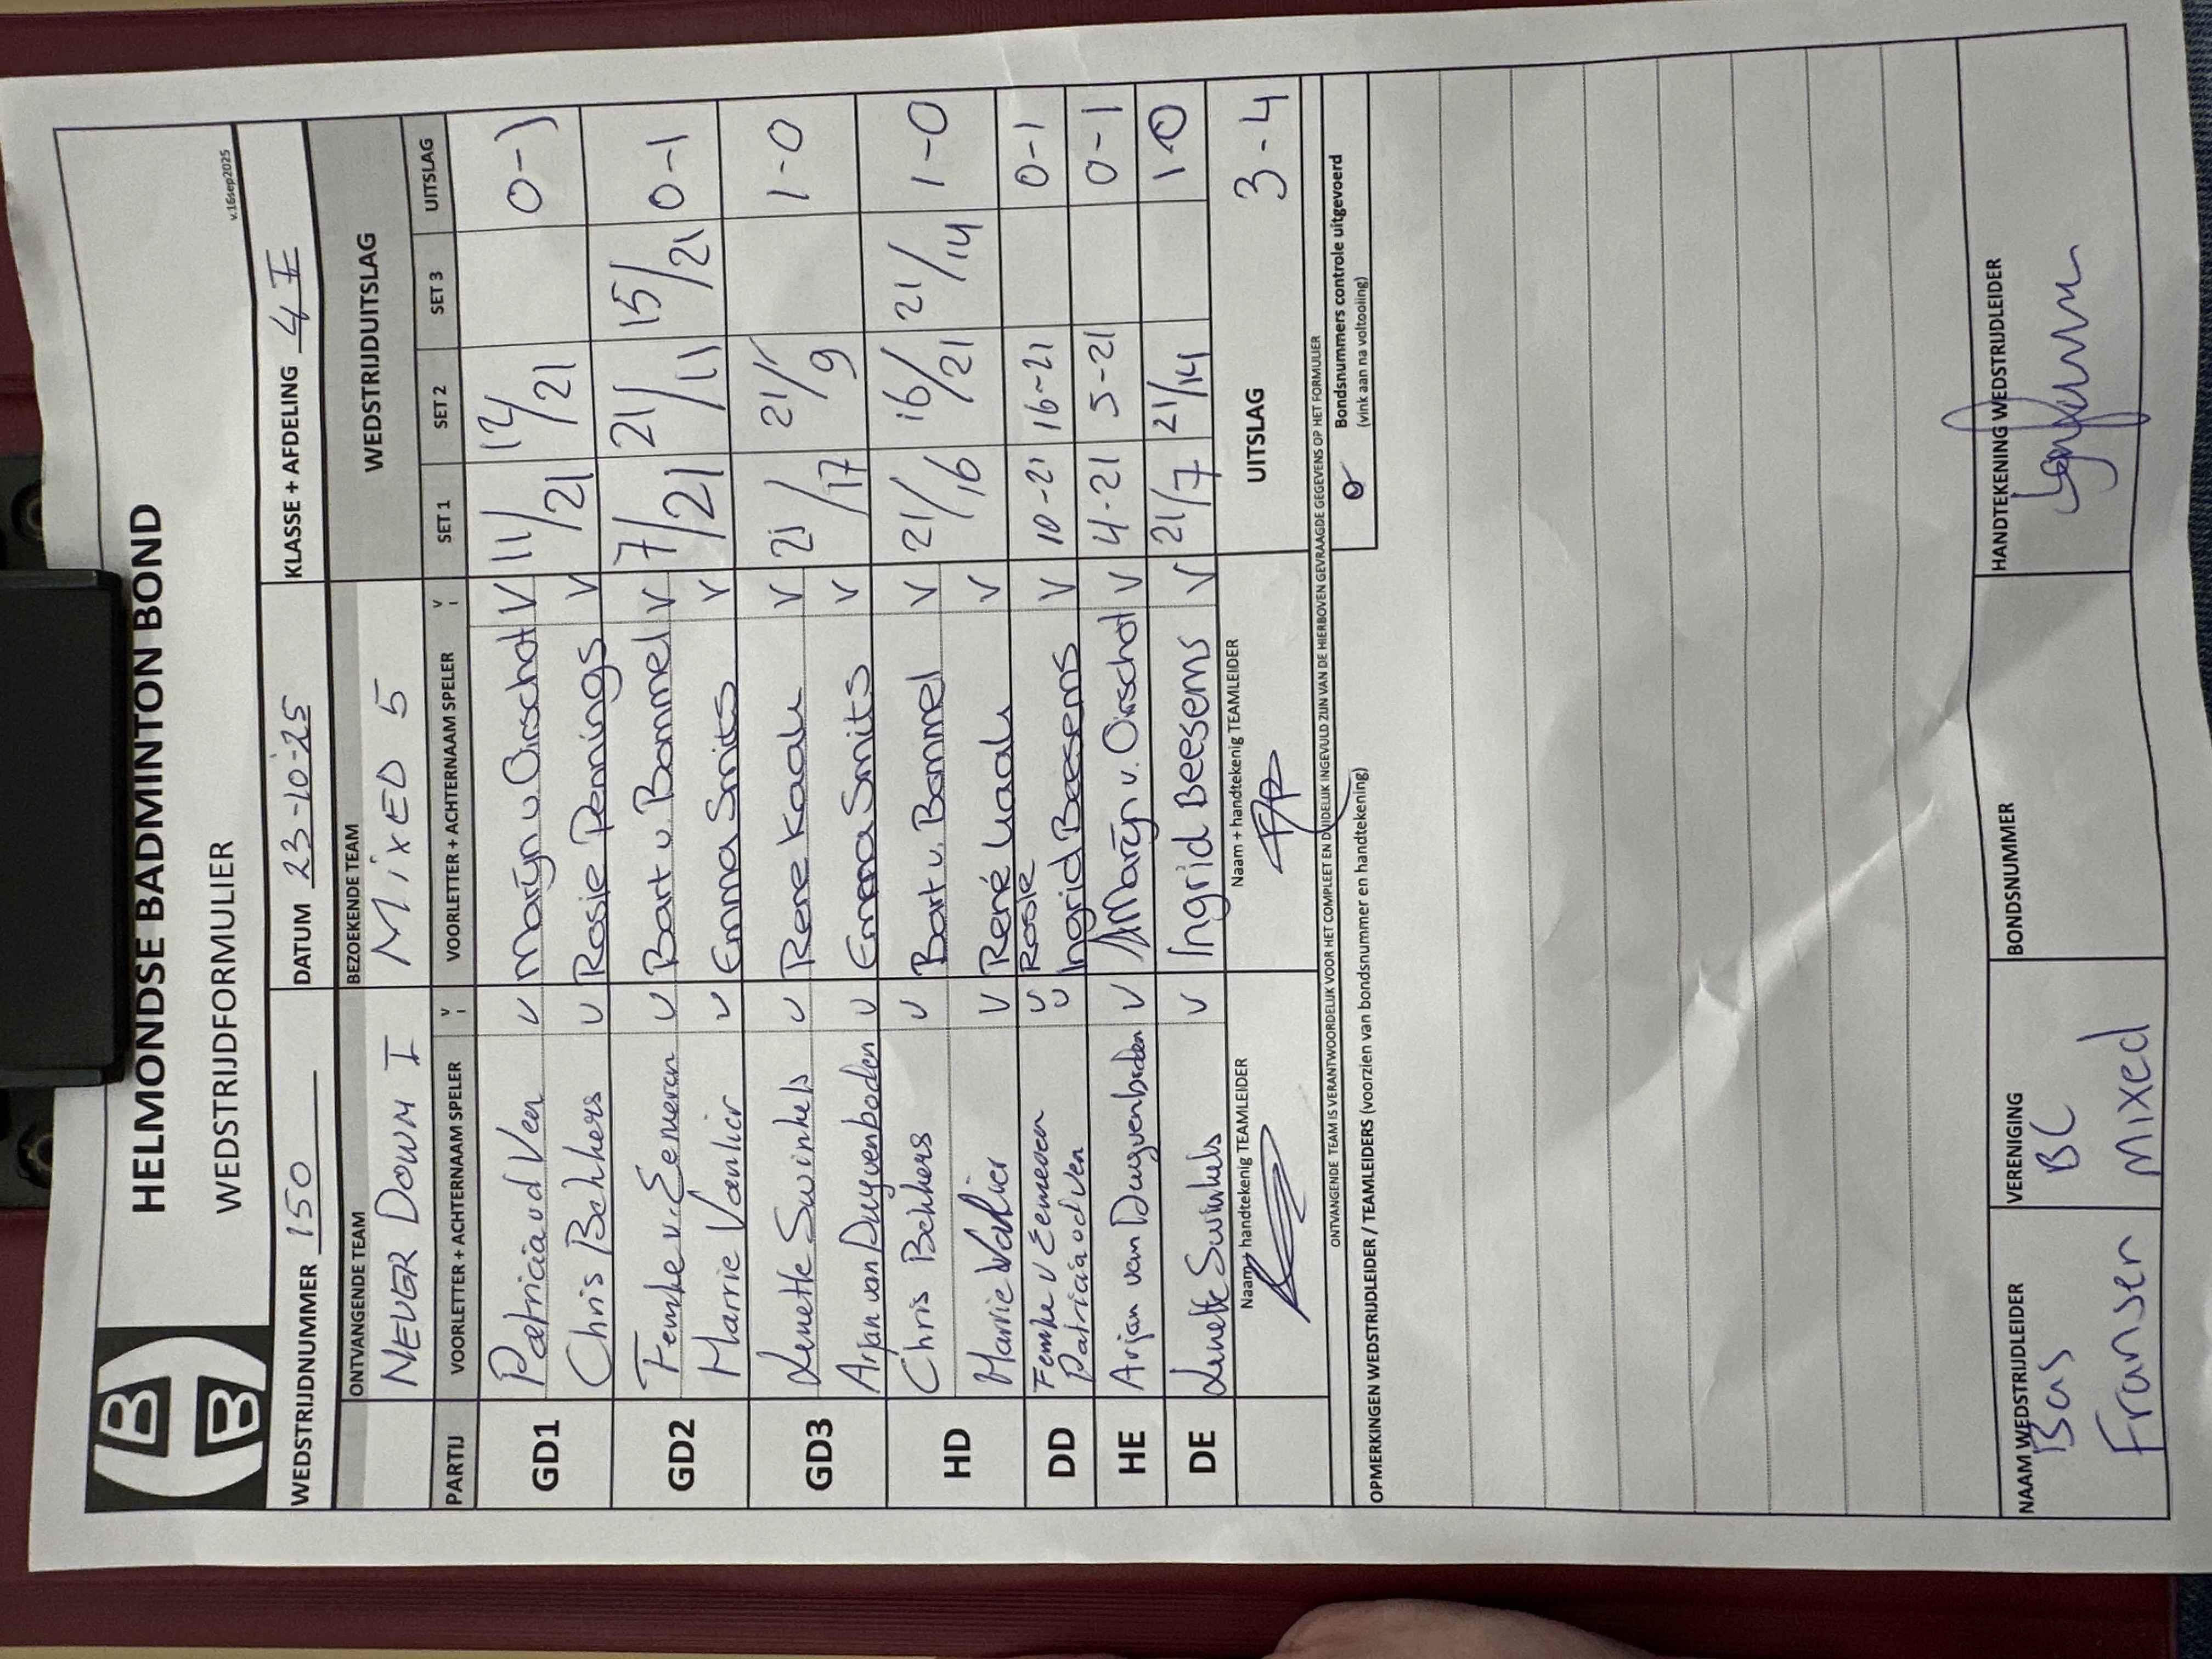 HELMONDSE BADMINTON BOND
WEDSTRIJDFORMULIER
v.16sep2025
WEDSTRIJDNUMMER 150 DATUM 23-10-25 KLASSE + AFDELING 4 I
ONTVANGENDE TEAM BEZOEKENDE TEAM WEDSTRIJDUITSLAG
NEVER DOWN I MixED 5
PARTIJ VOORLETTER + ACHTERNAAM SPELER V VOORLETTER + ACHTERNAAM SPELER V SET 1 SET 2 SET 3 UITSLAG
GD1 Patricia vd Ven V Marijn v Oirschot V 11/21 12/21 0-1
Chris Bekkers V Rosie Pennings V
GD2 Femke v. Eemeren V Bart v. Bommel V 7/21 21/11 15/21 0-1
Harrie Vanlier V Emma Smits V
GD3 Lenette Swinkels V Rene Kaak V 21/17 21/9 1-0
Arjan van Duyvenboden V Emma Smits V
HD Chris Bekkers V Bart v. Bommel V 21/16 16/21 21/14 1-0
Harrie V René V
DD Femke v Eemeren V Rosie V 10-21 16-21 0-1
Patricia vd Ven V Ingrid Beesems
HE Arjan van Duyvenboden V Marijn v. Oirschot V 4-21 5-21 0-1
DE Lenette Swinkels V Ingrid Beesems V 21/7 21/14 1-0
Naam + handtekenig TEAMLEIDER Naam + handtekenig TEAMLEIDER UITSLAG 3-4
ONTVANGENDE TEAM IS VERANTWOORDELIJK VOOR HET COMPLEET EN DUIDELIJK INGEVULD ZIJN VAN DE HIERBOVEN GEVRAAGDE GEGEVENS OP HET FORMULIER
Bondsnummers controle uitgevoerd
(vink aan na voltooiing)
OPMERKINGEN WEDSTRIJDLEIDER / TEAMLEIDERS (voorzien van bondsnummer en handtekening)
NAAM WEDSTRIJDLEIDER VERENIGING BONDSNUMMER HANDTEKENING WEDSTRIJDLEIDER
Bas BC
Fransen Mixed